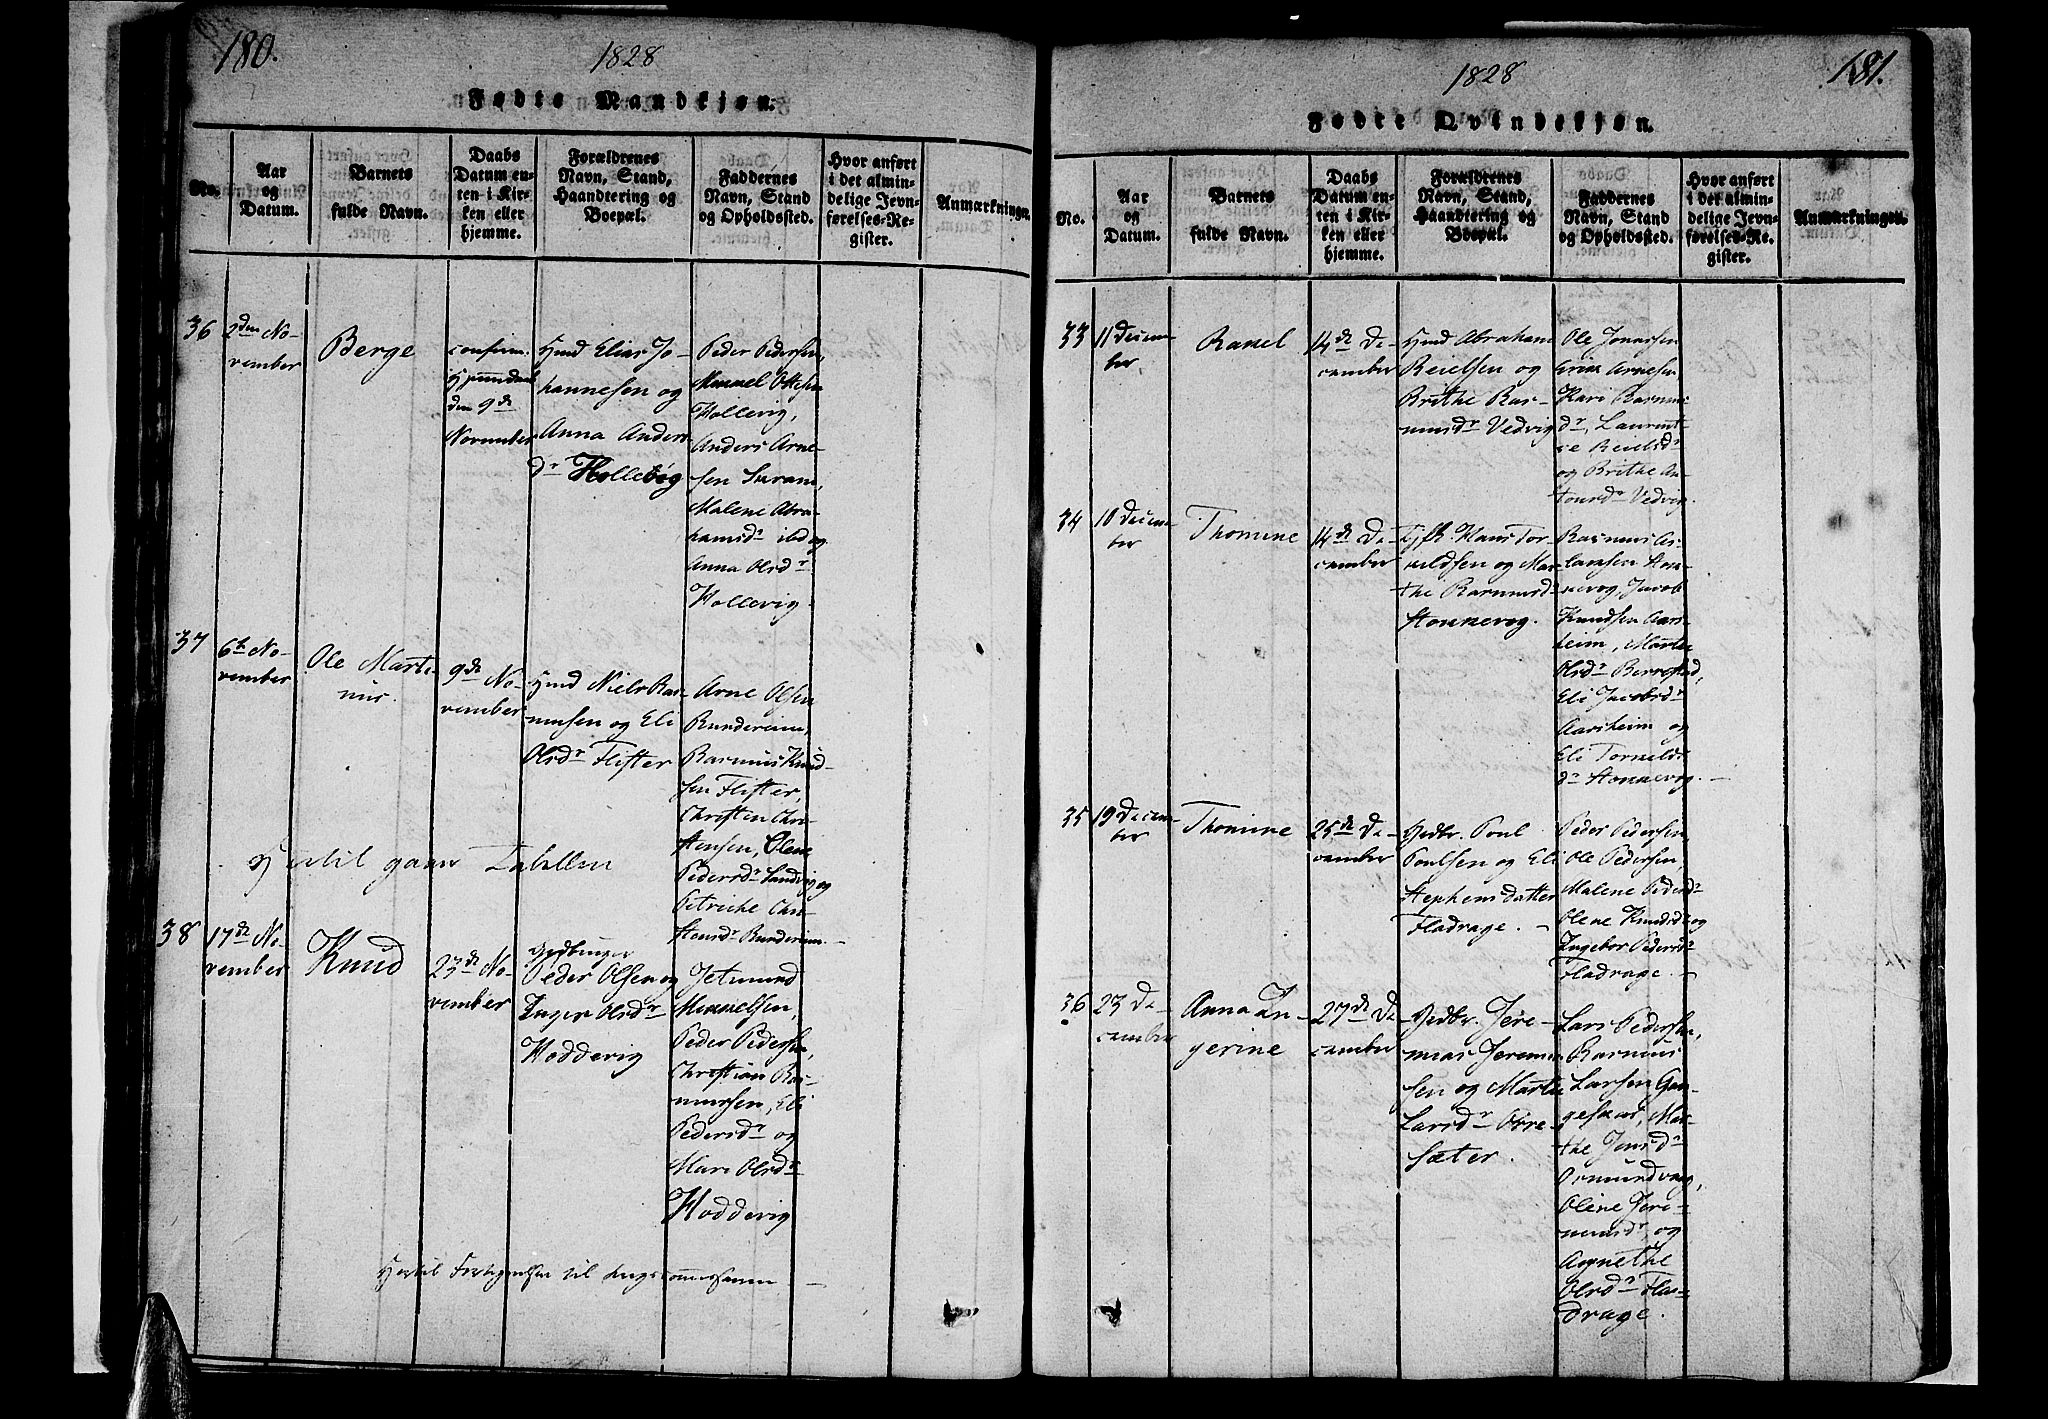 180.
1828
Fødte Mandkjøn.
No.
Aar
og
Datum.
Barnets
fulde Navn.
Daabs
Datum en-
ten i Kir-
ken eller
hjemme.
Forældrenes
Navn, Stand,
Haandtering og
Boepæl.
Faddernes
Navn, Stand
og Opholdssted.
Hvor anført
i det almin-
delige Jevn-
førelses-Re-
gister.
Anmærkninger.
36
2den No-
vember
Berge
confirm.
den 9de
November
Huusd Elias Jo-
hannesen og
Anna Anders
dr Hollevig
Peder Pedersen,
Mikkel Ottesen
Hollevig,
Anders Arne-
sen
Malene Abra-
hamsdr ibd og
Anna Olsdr
Hollevig
37
6te No-
vember
Ole Marti-
nus.
9de No-
vember
Niels Ras-
musen og Eli
Olsdr Flister
Arne Olsen
Rundereim,
Rasmus Knud-
sen Flister,
Christen Chri-
stensen, Olene
Pedersdr Sandvig og
Petriche Chri-
stensdr Rundereim.
Hertil gaaer Tabellen
38
17de No-
vember
Knud
23de No-
vember
Peder Olsen og
Inger Olsdr
Hoddevig
Jetmund
Mikkelsen,
Peder Pedersen,
Christian Ras-
mussen, Eli
Pedersdr og
Mari Olsdr
Hoddevig
Hertil Fortegnelsen til
181.
1828
Fødte Qvindekjøn.
No.
Aar
og
Datum.
Barnets
fulde Navn.
Daabs
Datum en-
ten i Kir-
ken eller
hjemme.
Forældrenes
Navn, Stand,
Haandtering og
Boepæl.
Faddernes
Navn, Stand
og Opholdssted.
Hvor anført
i det almin-
delige Jevn-
førelses-Re-
gister.
Anmærkninger.
33
11 Decem-
ber,
Rakel
14de De-
cember
Abraham
Reielsen og
Brithe Ras-
musdr Vedvig
Ole Jonassen
Arnesen
Kari Rasmus
dr, Laurent-
se Reielsdr
og Brithe An-
tonsdr Vedvig.
34
10 Decem-
ber
Thomine
14de De-
cember
Hans Tor-
kildsen og Mar-
the Rasmusd
Honnevog.
Rasmus As-
lacsen Hon-
nevog, Jacob
Knudsen Aars-
heim, Marthe
Olsdr Berrestad,
Eli Jacobsdr
Aarsheim og
Eli Torkilds
dr Honnevog.
35
19 Decem-
ber
Thomine
25de De-
cember
Gedbr. Poul
Poulsen og Eli
Stephensdatter
Fladrage.
Peder Pedersen,
Ole Pedersen,
Malene Pedersdr
Olene Knudsdr og
Ingebor Pedersdr
Fladrage.
36
23 De-
cember
Anna In-
gerine
27de De-
cember
Gedbr. Jere-
mias Jeremia-
sen og Marthe
Larsdr Ørre-
sæter.
Lars Pedersen,
Rasmus
Larsen Gan-
geskaar, Mar-
the Jensdr
Osmundvaag,
Olene Jere-
miasdr og
Agnethe
Olsdr Fla-
drage.